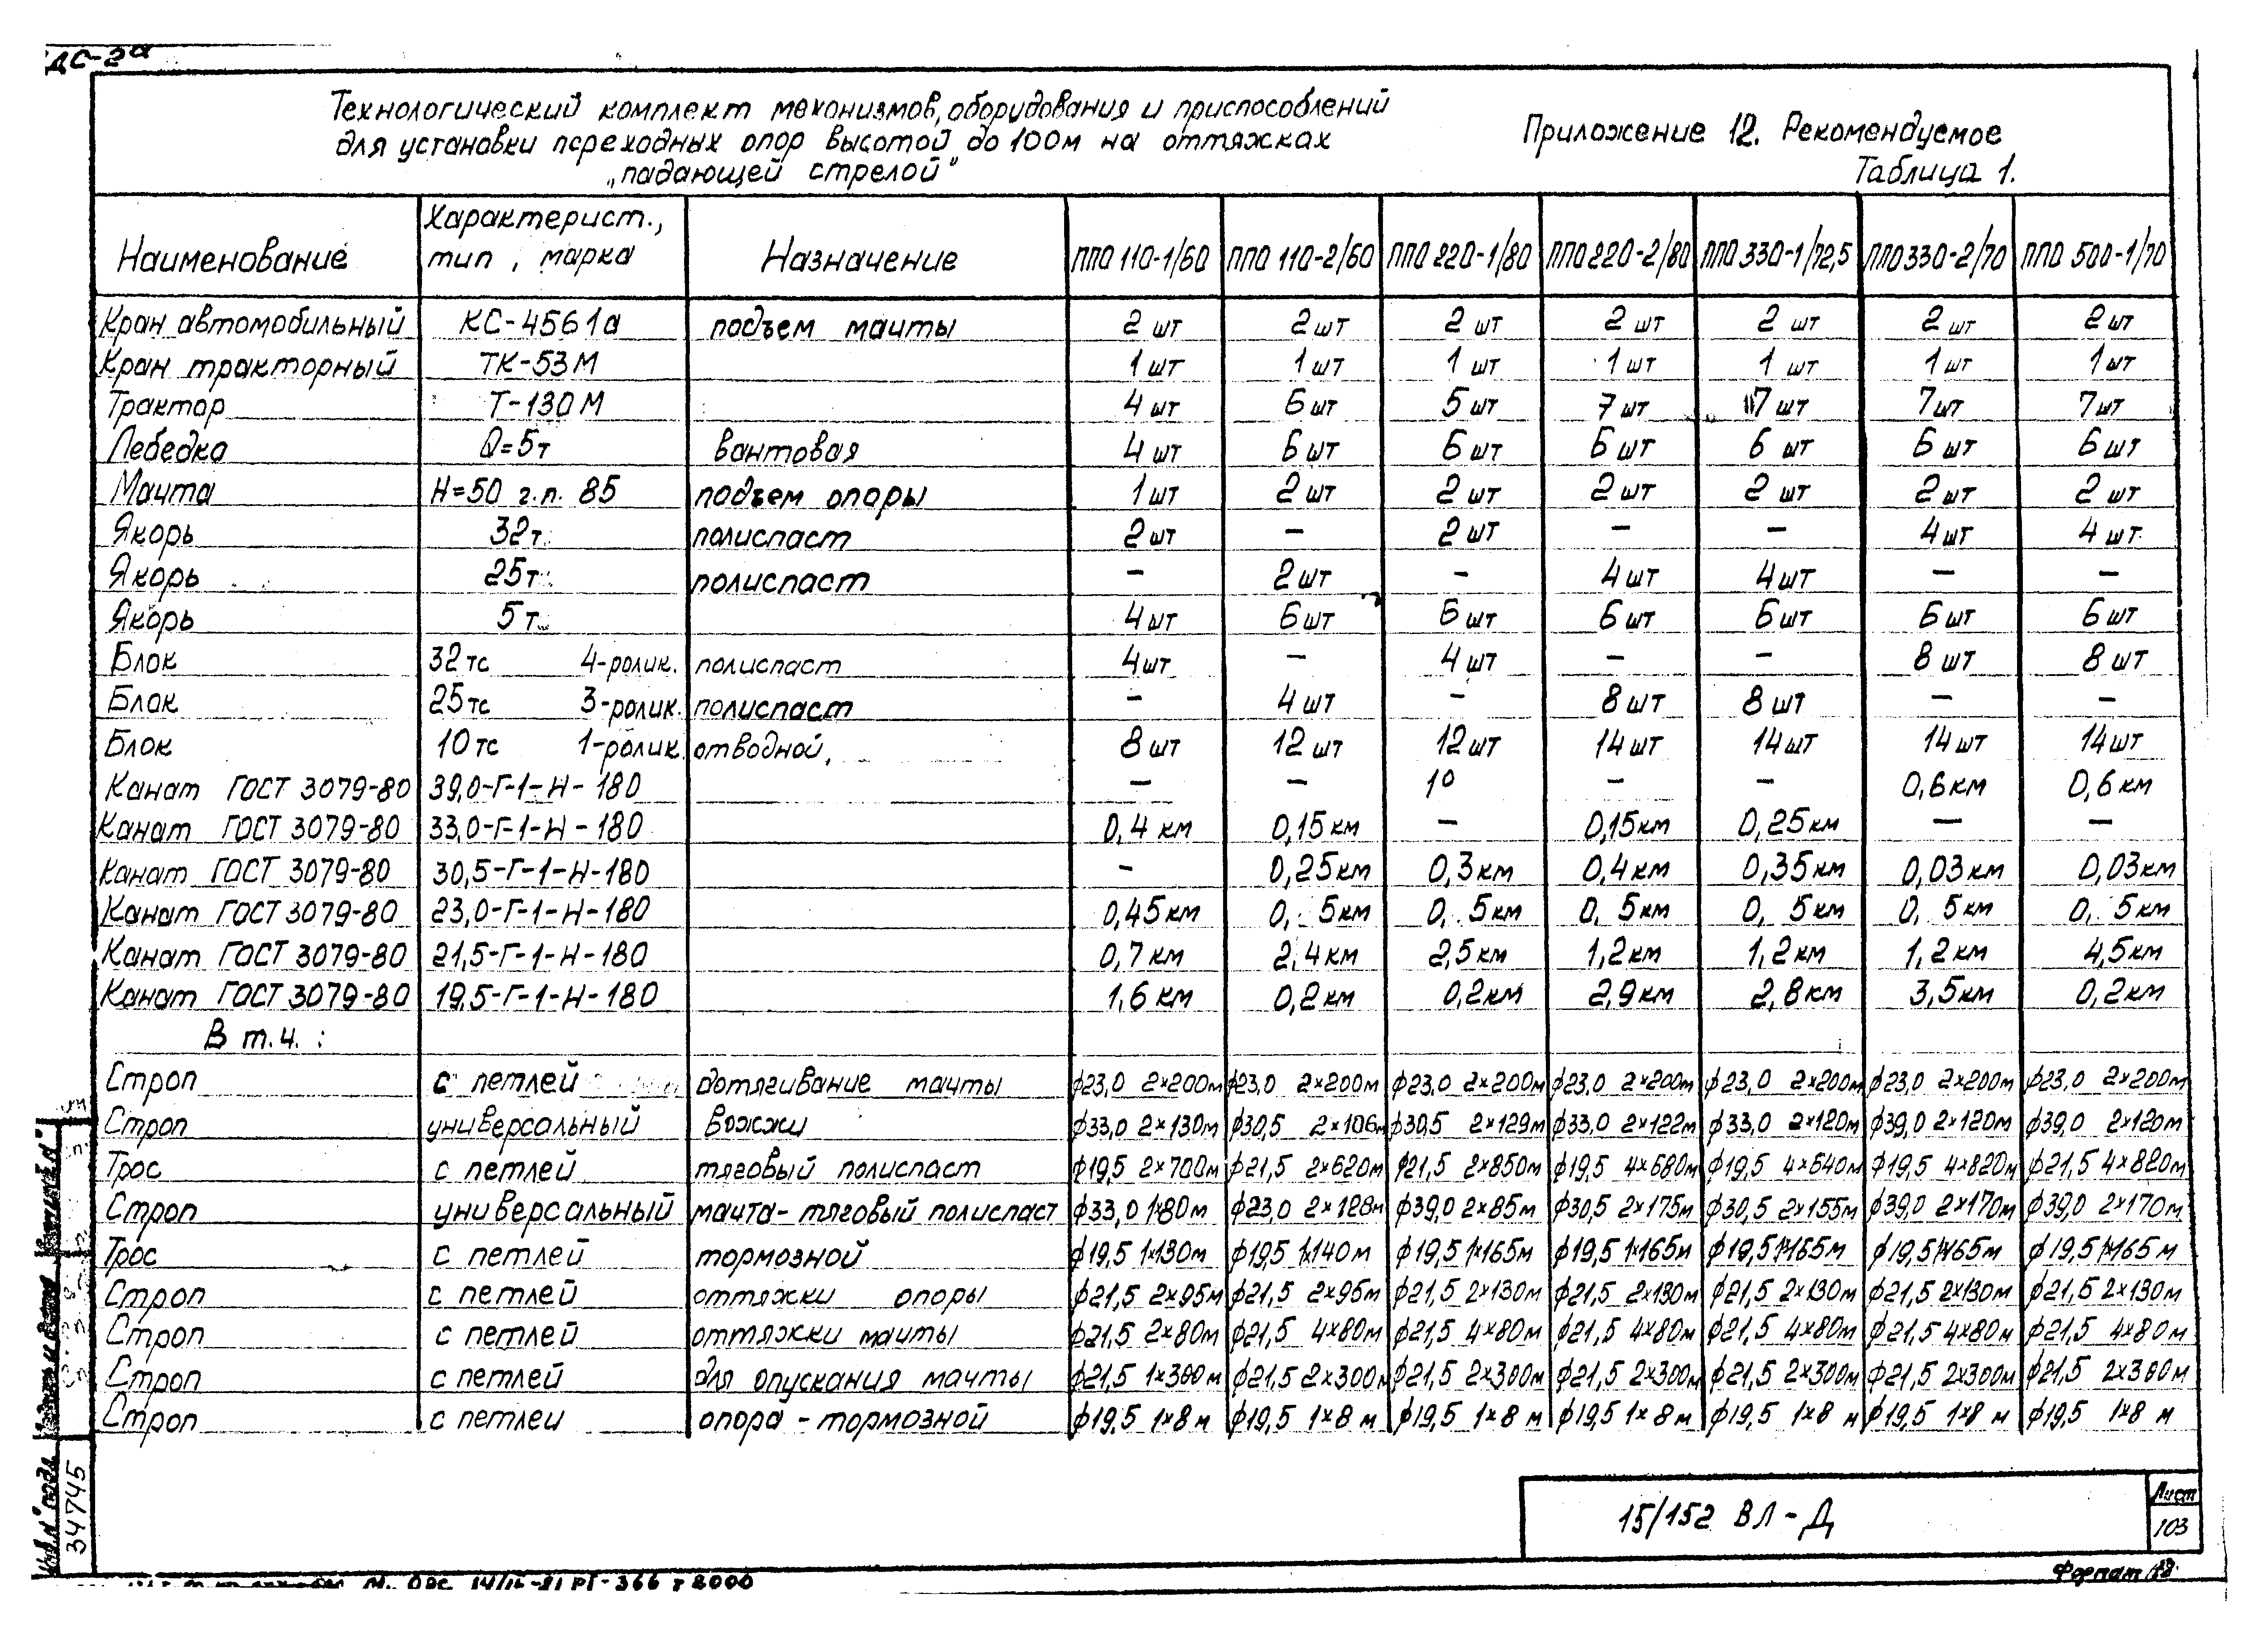 ДС-2а
Технологический комплект механизмов, оборудования и приспособлений
для установки переходных опор высотой до 100м на оттяжках
„падающей стрелой"
Приложение 12. Рекомендуемое
Таблица 1.
Наименование Характерист., тип, марка Назначение ППО 110-1/60 ППО 110-2/60 ППО 220-1/80 ППО 220-2/80 ППО 330-1/72,5 ППО 330-2/70 ППО 500-1/70
Кран автомобильный КС-4561а подъем мачты 2 шт 2 шт 2 шт 2 шт 2 шт 2 шт 2 шт
Кран тракторный ТК-53М 1 шт 1 шт 1 шт 1 шт 1 шт 1 шт 1 шт
Трактор Т-130М 4 шт 6 шт 5 шт 7 шт 7 шт 7 шт 7 шт
Лебедка Q=5т вантовая 4 шт 6 шт 6 шт 6 шт 6 шт 6 шт 6 шт
Мачта Н=50 г.п. 85 подъем опоры 1 шт 2 шт 2 шт 2 шт 2 шт 2 шт 2 шт
Якорь 32т полиспаст 2 шт – 2 шт – – 4 шт 4 шт
Якорь 25т полиспаст – 2 шт – 4 шт 4 шт – –
Якорь 5т 4 шт 6 шт 6 шт 6 шт 6 шт 6 шт 6 шт
Блок 32тс 4-ролик. полиспаст 4 шт – 4 шт – – 8 шт 8 шт
Блок 25тс 3-ролик. полиспаст – 4 шт – 8 шт 8 шт – –
Блок 10тс 1-ролик. отводной 8 шт 12 шт 12 шт 14 шт 14 шт 14 шт 14 шт
Канат ГОСТ 3079-80 39,0-Г-1-Н-180 – – – – 0,6 км 0,6 км
Канат ГОСТ 3079-80 33,0-Г-1-Н-180 0,4 км 0,15 км – 0,15 км 0,25 км – –
Канат ГОСТ 3079-80 30,5-Г-1-Н-180 – 0,25 км 0,3 км 0,4 км 0,35 км 0,03 км 0,03 км
Канат ГОСТ 3079-80 23,0-Г-1-Н-180 0,45 км 0, 5 км 0, 5 км 0, 5 км 0, 5 км 0, 5 км 0, 5 км
Канат ГОСТ 3079-80 21,5-Г-1-Н-180 0,7 км 2,4 км 2,5 км 1,2 км 1,2 км 1,2 км 4,5 км
Канат ГОСТ 3079-80 19,5-Г-1-Н-180 1,6 км 0,2 км 0,2 км 2,9 км 2,8 км 3,5 км 0,2 км
В т.ч. :
Строп с петлей дотягивание мачты ф23,0 2×200м ф23,0 2×200м ф23,0 2×200м ф23,0 2×200м ф23,0 2×200м ф23,0 2×200м ф23,0 2×200м
Строп универсальный вожжи ф33,0 2×130м ф30,5 2×106м ф30,5 2×129м ф33,0 2×122м ф33,0 2×120м ф39,0 2×120м ф39,0 2×120м
Трос с петлей тяговый полиспаст ф19,5 2×700м ф21,5 2×620м ф21,5 2×850м ф19,5 4×680м ф19,5 4×640м ф19,5 4×820м ф21,5 4×820м
Строп универсальный мачта-тяговый полиспаст ф33,0 1×80м ф23,0 2×128м ф39,0 2×85м ф30,5 2×175м ф30,5 2×155м ф39,0 2×170м ф39,0 2×170м
Трос с петлей тормозной ф19,5 1×130м ф19,5 1×140м ф19,5 1×165м ф19,5 1×165м ф19,5 1×165м ф19,5 1×165м ф19,5 1×165м
Строп с петлей оттяжки опоры ф21,5 2×95м ф21,5 2×95м ф21,5 2×130м ф21,5 2×130м ф21,5 2×130м ф21,5 2×130м ф21,5 2×130м
Строп с петлей оттяжки мачты ф21,5 2×80м ф21,5 4×80м ф21,5 4×80м ф21,5 4×80м ф21,5 4×80м ф21,5 4×80м ф21,5 4×80м
Строп с петлей для опускания мачты ф21,5 1×300м ф21,5 2×300м ф21,5 2×300м ф21,5 2×300м ф21,5 2×300м ф21,5 2×300м ф21,5 2×300м
Строп с петлеи опора-тормозной ф19,5 1×8 м ф19,5 1×8 м ф19,5 1×8 м ф19,5 1×8 м ф19,5 1×8 м ф19,5 1×8 м ф19,5 1×8 м
34745
15/152 ВЛ-Д
Лист
103
Формат